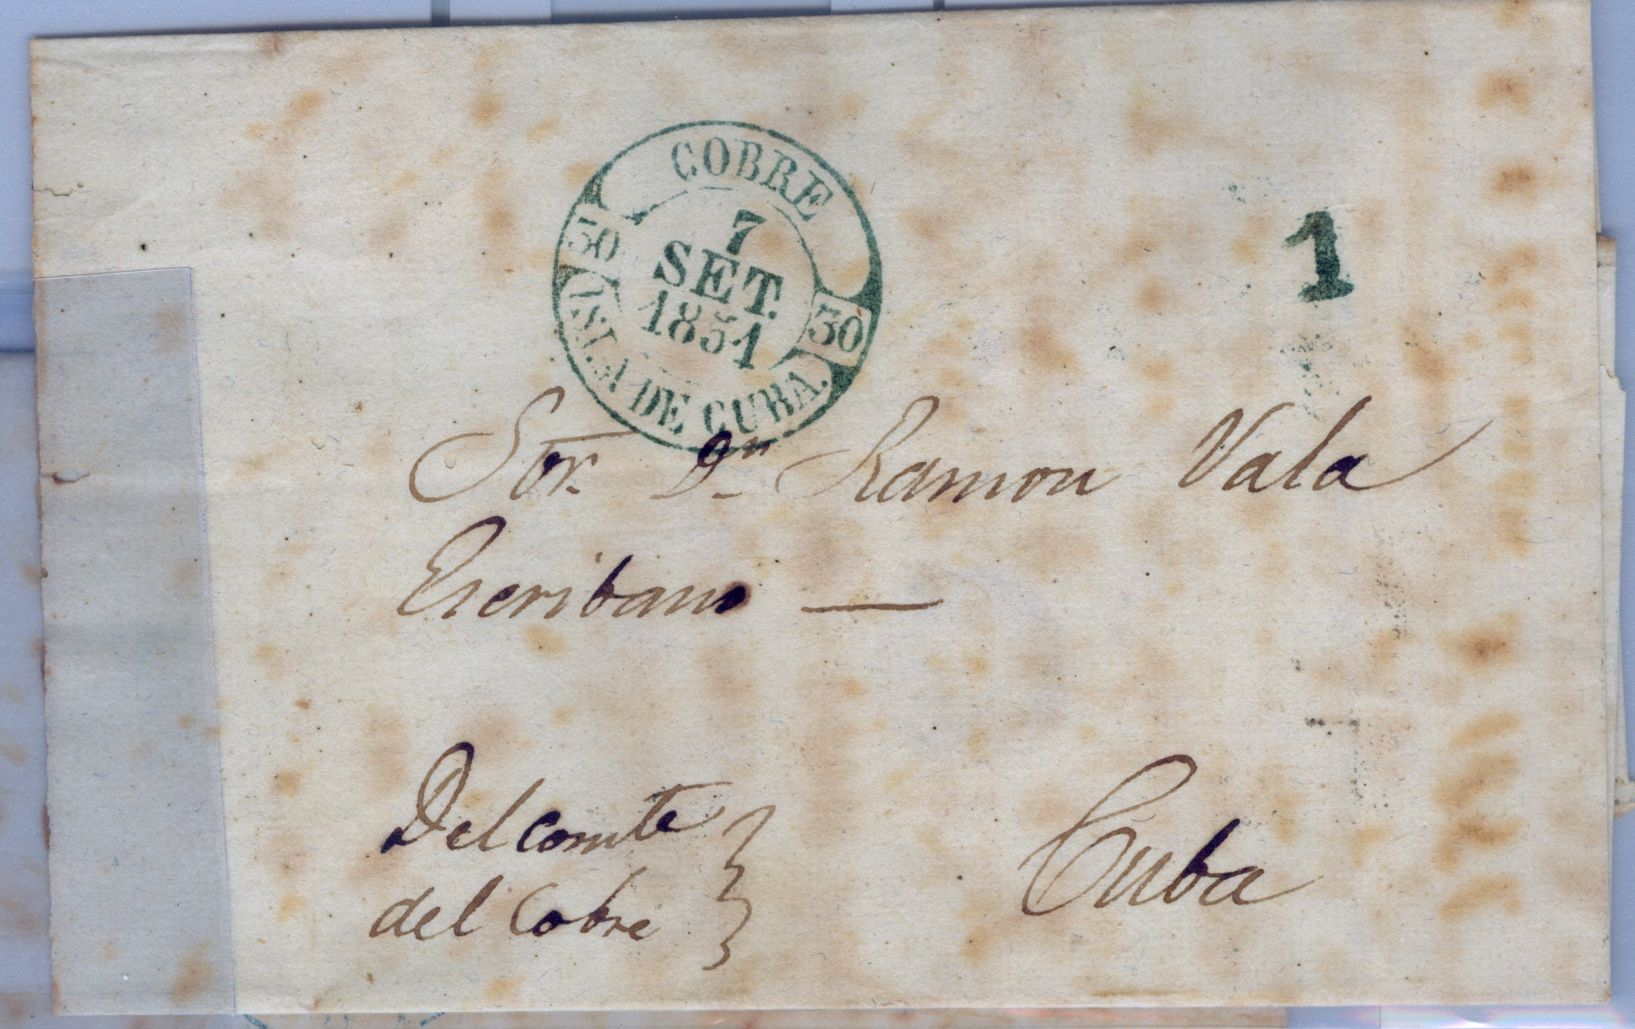 COBRE
7
SET.
1851
30 30
ISLA DE CUBA.
1
Sor. Dn Ramon Vala
Escribano —
Del comte
del Cobre
Cuba